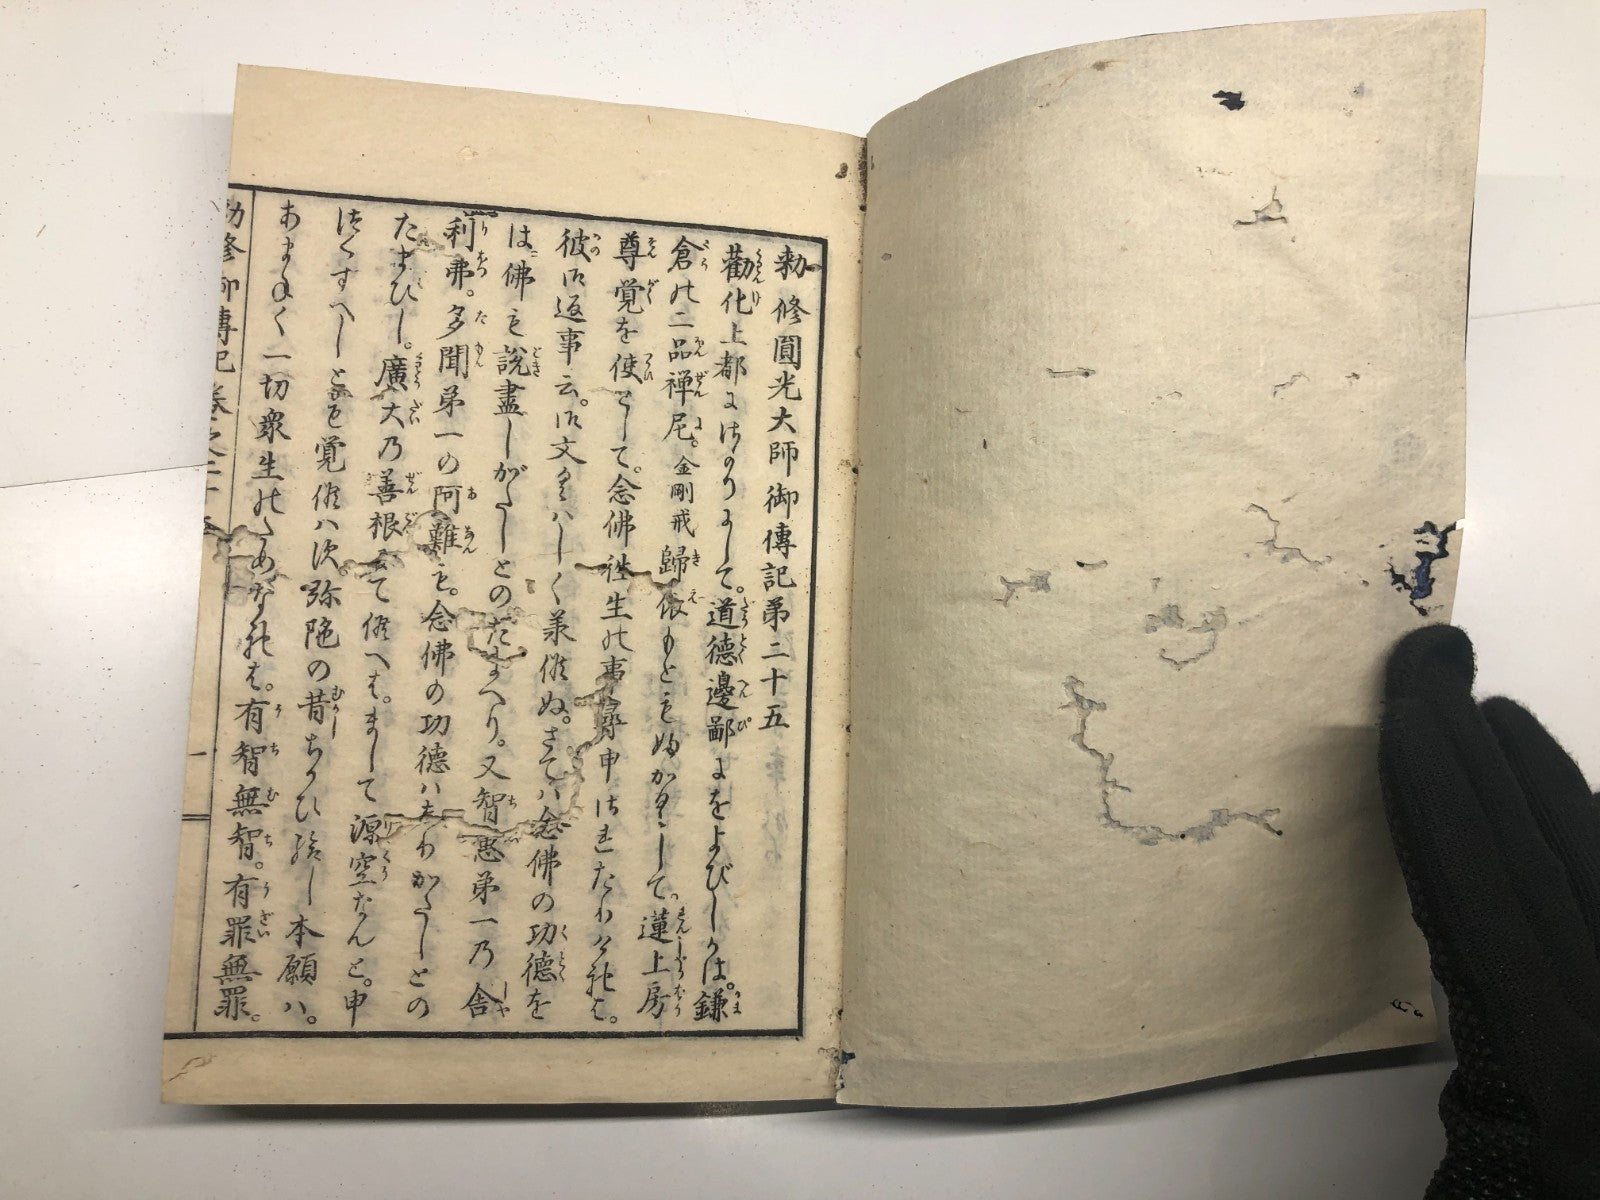 勅修圓光大師御傳記第二十五
勸化上都にはのりまして。道德邊鄙にをよびしかは。鎌
倉の二品禅尼。金剛戒歸依もともふかくして。蓮上房
尊覚を使として。念佛徃生の事尋申されたりけれは。
彼御返事云。御文くはしく承候ぬ。さては念佛の功德を
は佛も説盡しがたしとのたまへり。又智恵第一乃舎
利弗。多聞弟一の阿難も。念佛の功德はしりがたしとの
たまひし。廣大乃善根にて候へは。まして源空なんと。申
つくすへしとも覚候はす。弥陁の昔ちかひ給し本願は。
あまねく一切衆生のためなれは。有智無智。有罪無罪。
勅修御傳記巻之二十五